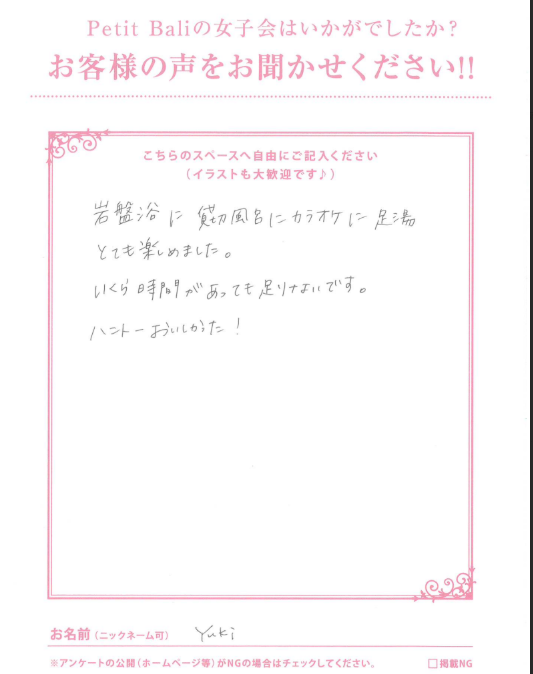 Petit Baliの女子会はいかがでしたか?
お客様の声をお聞かせください!!
こちらのスペースへ自由にご記入ください
(イラストも大歓迎です♪)
岩盤浴に 貸切風呂にカラオケに 足湯
とても楽しめました。
いくら時間があっても足りないです。
ハニトーおいしかった!
お名前(ニックネーム可) Yuki
※アンケートの公開(ホームページ等)がNGの場合はチェックしてください。 □掲載NG